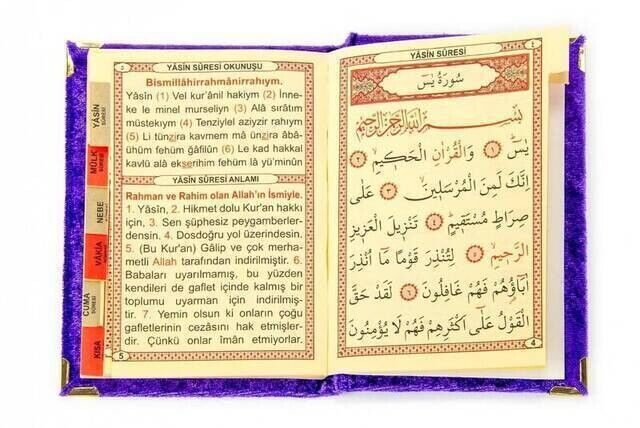 YÂSİN SÛRESİ OKUNUŞU
Bismillâhirrahmânirrahıym.
Yâsîn (1) Vel kur'ânil hakiym (2) İnne-
ke le minel murseliyn (3) Alâ sırâtım
müstekıym (4) Tenziylel aziyzir rahıym
(5) Li tünzira kavmem mâ ünzira âbâ-
ühüm fehüm ğâfilûn (6) Le kad hakkal
kavlü alâ ekserihim fehüm lâ yü'minûn
YÂSİN SÛRESİ ANLAMI
Rahman ve Rahim olan Allah'ın İsmiyle.
1. Yâsîn, 2. Hikmet dolu Kur'an hakkı
için, 3. Sen şüphesiz peygamberler-
densin. 4. Dosdoğru yol üzerindesin.
5. (Bu Kur'an) Gâlip ve çok merha-
metli Allah tarafından indirilmiştir. 6.
Babaları uyarılmamış, bu yüzden
kendileri de gaflet içinde kalmış bir
toplumu uyarman için indirilmiş-
tir. 7. Yemin olsun ki onların çoğu
gafletlerinin cezasını hak etmişler-
dir. Çünkü onlar îmân etmiyorlar.
5
YÂSİN SÛRESİ
MÜLK SÛRESİ
NEBE
VÂKIA
CUMA SÛRESİ
KISA
YÂSİN SÛRESİ
٤
سُورَةُ يٰسٓ
بِسْمِ اللّٰهِ الرَّحْمٰنِ الرَّحِيمِ
يٰسٓ ﴿١﴾ وَالْقُرْاٰنِ الْحَكِيمِ ﴿٢﴾
اِنَّكَ لَمِنَ الْمُرْسَلِينَ ﴿٣﴾ عَلٰى
صِرَاطٍ مُسْتَقِيمٍ ﴿٤﴾ تَنْزِيلَ الْعَزِيزِ
الرَّحِيمِ ﴿٥﴾ لِتُنْذِرَ قَوْمًا مَٓا اُنْذِرَ
اٰبَٓاؤُهُمْ فَهُمْ غَافِلُونَ ﴿٦﴾ لَقَدْ حَقَّ
الْقَوْلُ عَلٰٓى اَكْثَرِهِمْ فَهُمْ لَا يُؤْمِنُونَ
4